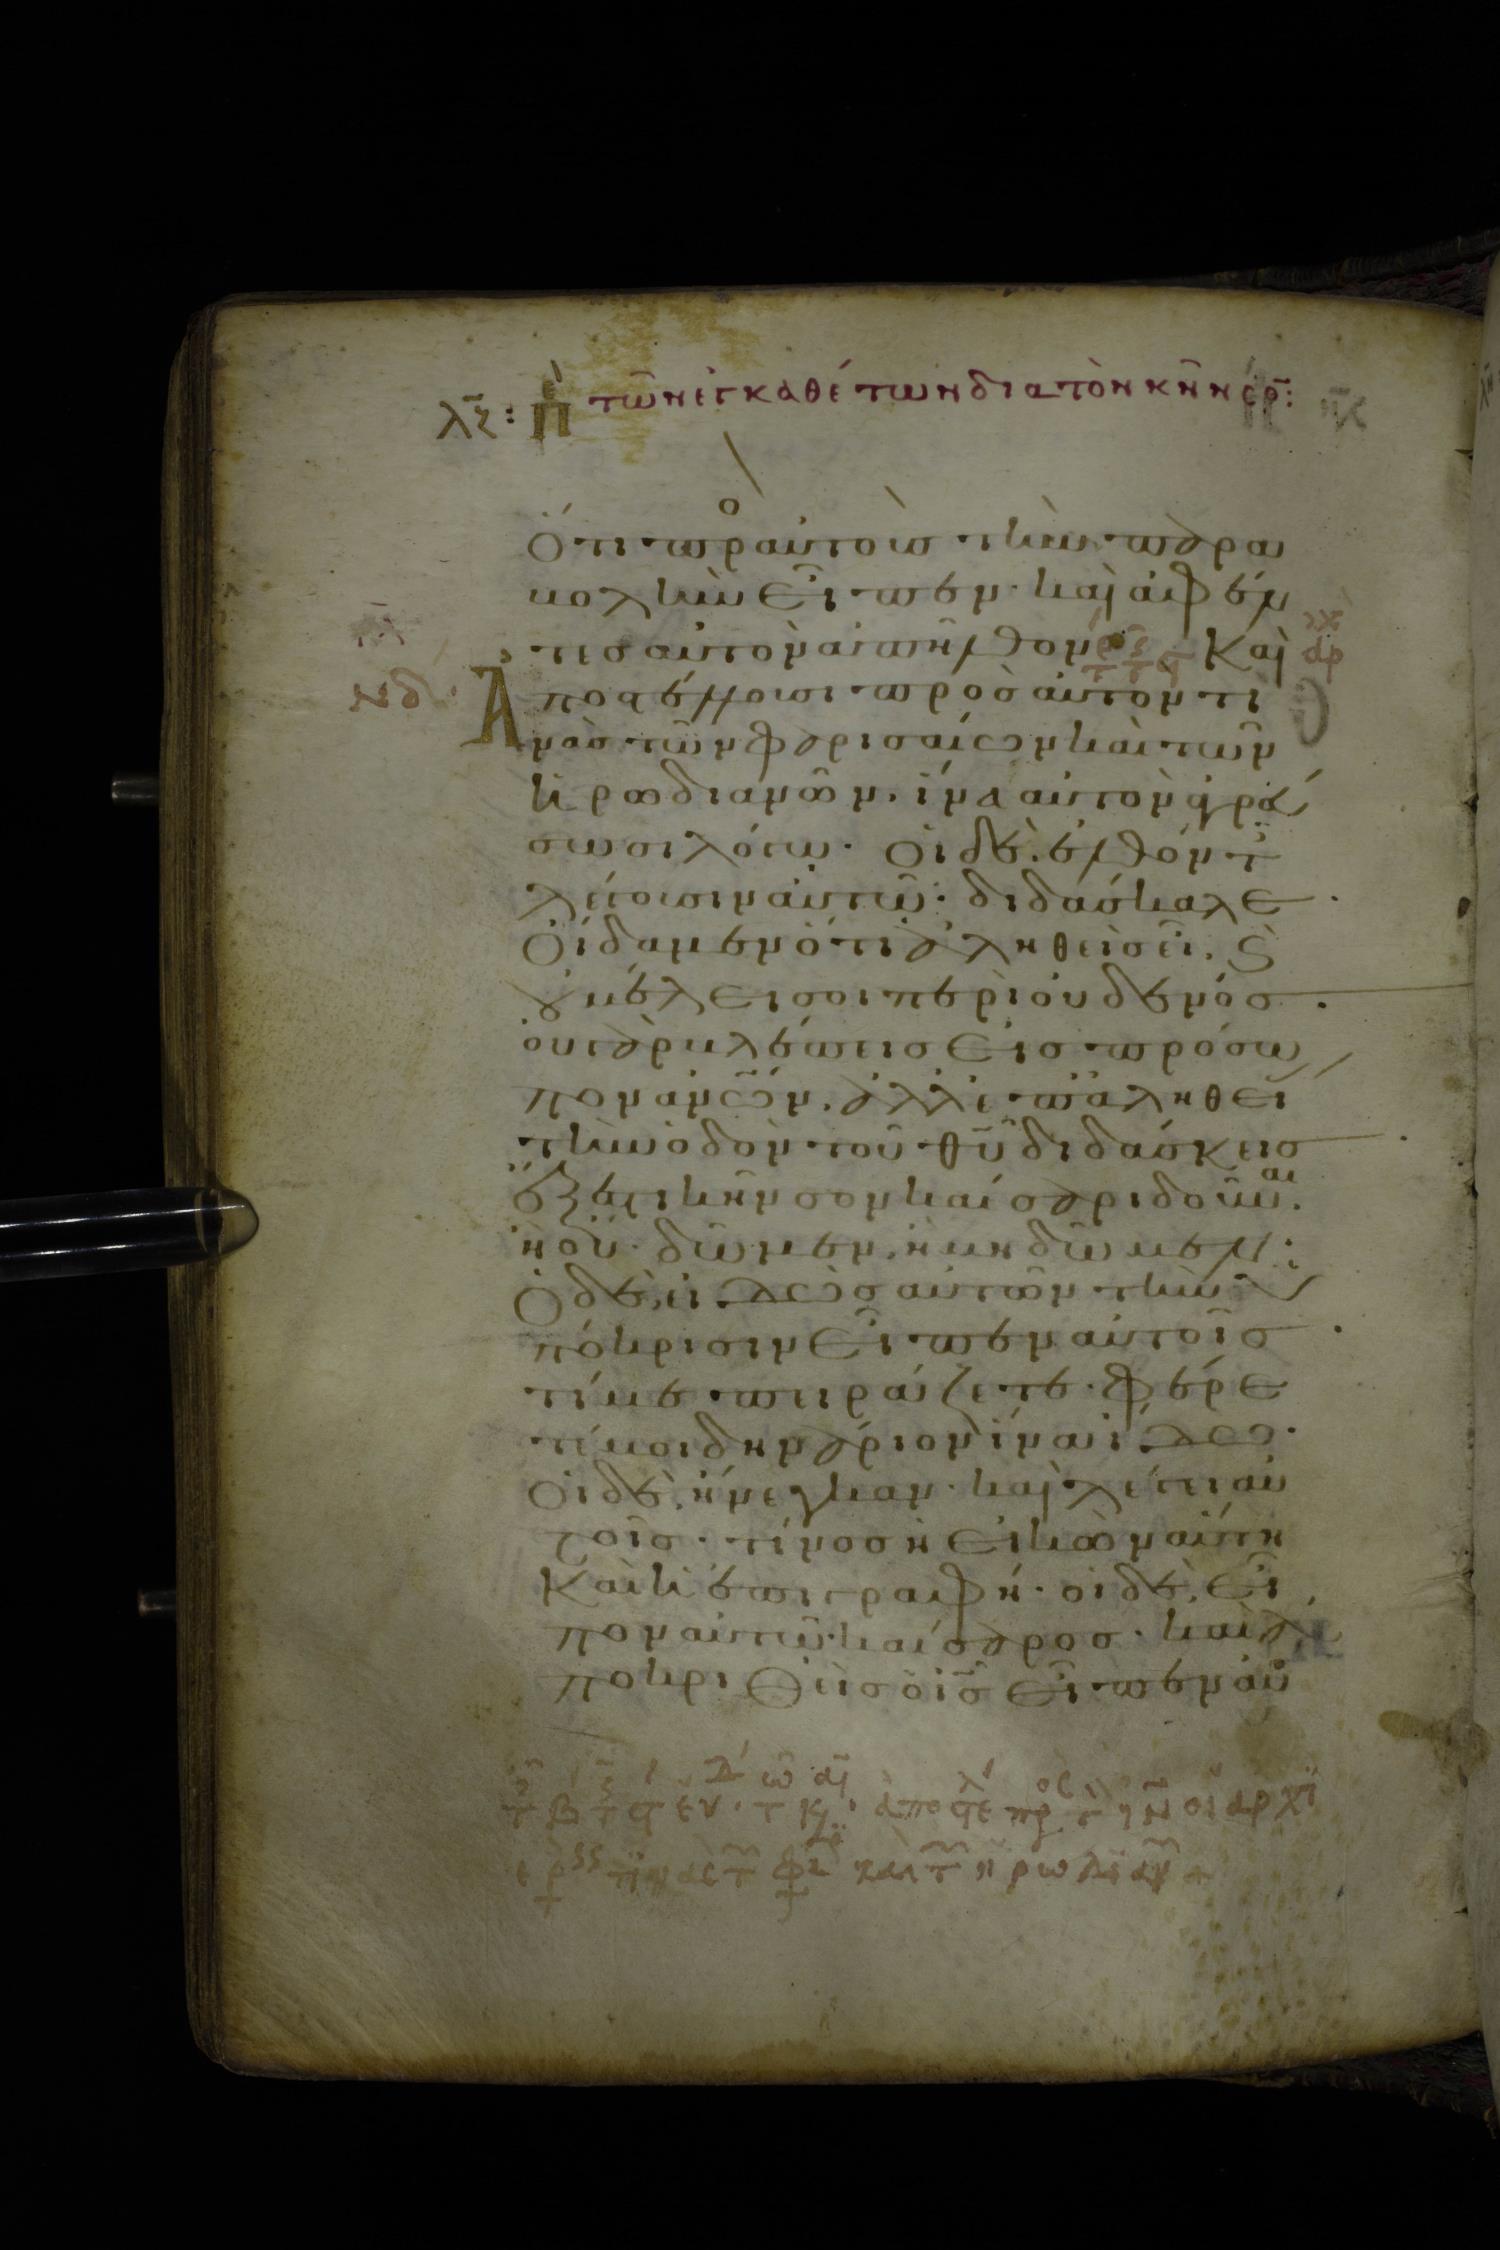 λϛ: Π τῶν ἐγκαθέτων διὰ τὸν κῆνσο:
Ὅτι πρὸς αὐτοὺς τὴν παραι
βολὴν εἶπεν· καὶ ἀφέν
τες αὐτὸν ἀπῆλθον Καὶ
νδ Ἀποστέλλουσι πρὸς αὐτόν τι
νὰς τῶν φαρισαίων καὶ τῶν
ἡρωδιανῶν. ἵνα αὐτὸν ἀγρεύ
σωσι λόγω· Οἱ δὲ ἐλθόντ
λέγουσιν αὐτῶ· διδάσκαλε
Οἴδαμεν ὅτι ἀληθεὶς εἶ. ϗ
οὐ μέλει σοι περὶ οὐδενός
οὐ γὰρ βλέπεις εἰς πρόσω
πον ἀνῶν. ἀλλ' ἐπ' ἀληθεί
τὴν ὁδὸν τοῦ θῦ διδάσκεις
ἔξεστι κῆνσον καίσαρι δοῦναι.
ἢ οὔ· δῶμεν, ἢ μὴ δῶμεν;
Ὁ δὲ, εἰδὼς αὐτῶν τὴν ὑ
πόκρισιν εἶπεν αὐτοῖς
τί με πειράζετε· φέρε
τέ μοι δηνάριον ἵνα ἴδω·
Οἱ δὲ, ἤνεγκαν· καὶ λέγει αὐ
τοῖς· τίνος ἡ εἰκὼν αὕτη
Καὶ ἡ ἐπιγραφή· οἱ δὲ, εἶ
πον αὐτῶ· καίσαρος· καὶ ἀ
ποκριθεὶς ὁ ις εἶπεν αὐ